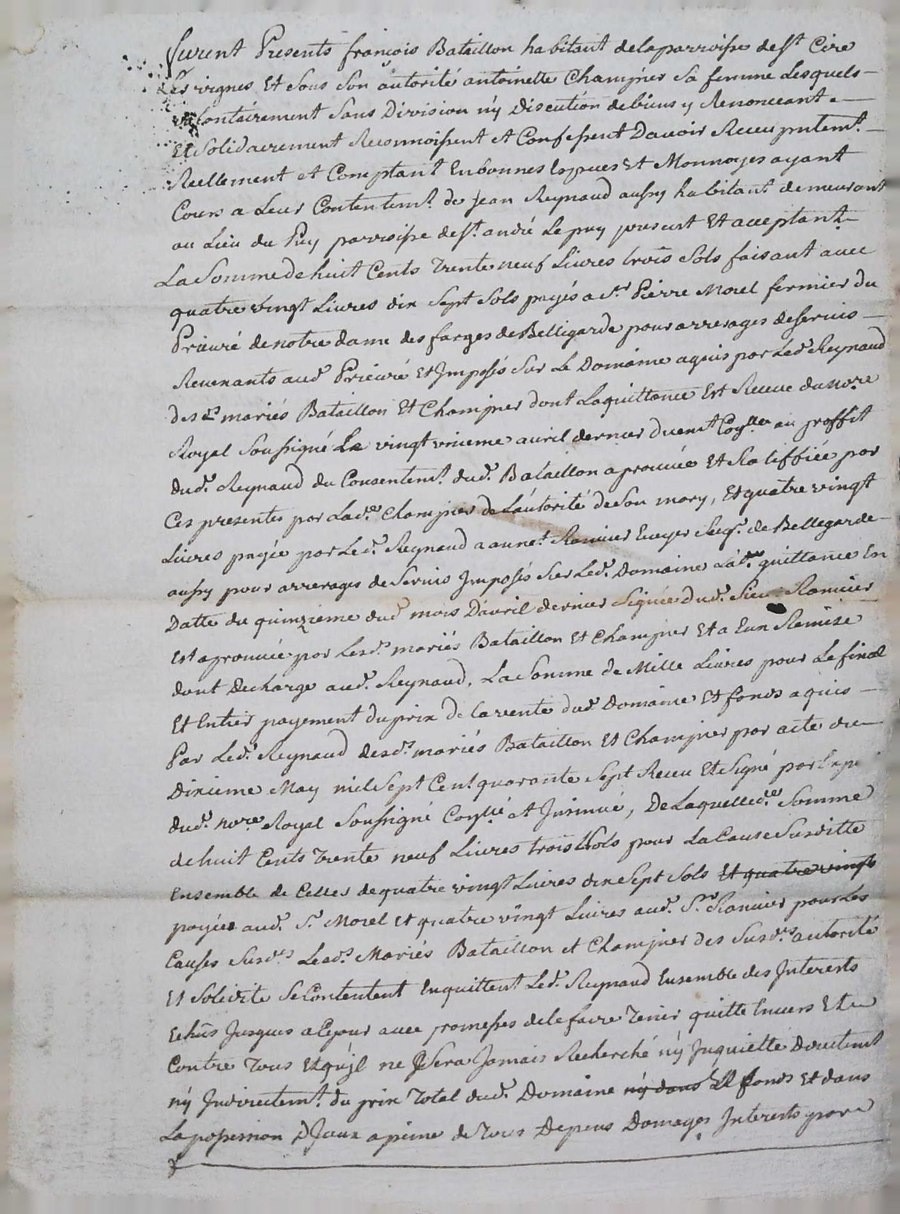 furent Presents françois Bataillon habitant delaparroisse de st Cire
Les vignes Et sous son autorité antoinette Champier sa femme Lesquels
Sans Division n'y Discution debiens y Renonceant
Et solidairement Reconnoissent et Confessent Davoir Receu pntemt
Reellement et Comptant En bonnes Especes Et Monnoyes ayant
Cours a Leur Contentemt de Jean Reynaud aussy habitant demeurant
au Lieu du Puy parroisse de st andré Le puy present Et acceptant
La Somme de huit Cents Trente neuf Livres trois Sols faisant avec
quatre vingt Livres dix Sept Sols payés a sr Pierre Morel fermier du
Prieuré de notre dame des farges de Belligarde pour arrerages de servis
Revenants aud Prieuré Et Imposés Sur Le Domaine aquis par Led Reynaud
des d mariés Bataillon Et Champier dont La quittance Est Receue du nore
Royal Soussigné Le vingt unieme avril dernier duemt Coñlleé au proffit
dud. Reynaud du Consentemt dud. Bataillon aprouvée Et Ratiffiée par
Ces presentes par Lade Champier de L'autorité de son mary, Et quatre vingt
Livres payée par Led. Reynaud a Ranvier Ecuyer Seigr de Bellegarde
aussy pour arrerages de Servis Imposés Sur Led. Domaine quittance En
Datte du quinzieme dud mois Davril dernier Signée dud. Sieur Ranvier
Est aprouvée par Lesd. mariés Bataillon Et Champier Et a Eux Remise
dont decharge aud. Reynaud. La Somme de Mille Livres pour Le final
Et Entier payement du prix de la vente dud Domaine Et fonds aquis
Par Led. Reynaud desd. mariés Bataillon Et Champier par acte du
Dixieme May mil Sept Cent quarante Sept Receu Et Signé par
dud. nore Royal Soussigné Coñlé et Insinué, De Laquelle de Somme
de huit Cents Trente neuf Livres trois Sols pour La Cause Susditte
Ensemble de Celles de quatre vingt Livres dix Sept Sols Et quatre vingts
payées aud. Sr Morel Et quatre vingt Livres aud. Sr Ranvier pour Les
Causes Susds Lesd. Mariés Bataillon et Champier des Susds autorité
Et Solidité Se Contentent En quittent Led. Reynaud Ensemble des Interests
Echus Jusques a Cejour avec promesses de le faire Tenir quitte Envers Et
Contre Tous Et qu'jl ne Sera Jamais Recherché n'y Inquietté Directemt
n'y Indirectemt du prix Total dud. Domaine n'y dans Et fonds Et dans
La possession D'Iceux a peine de Tous Depens Domages Interests